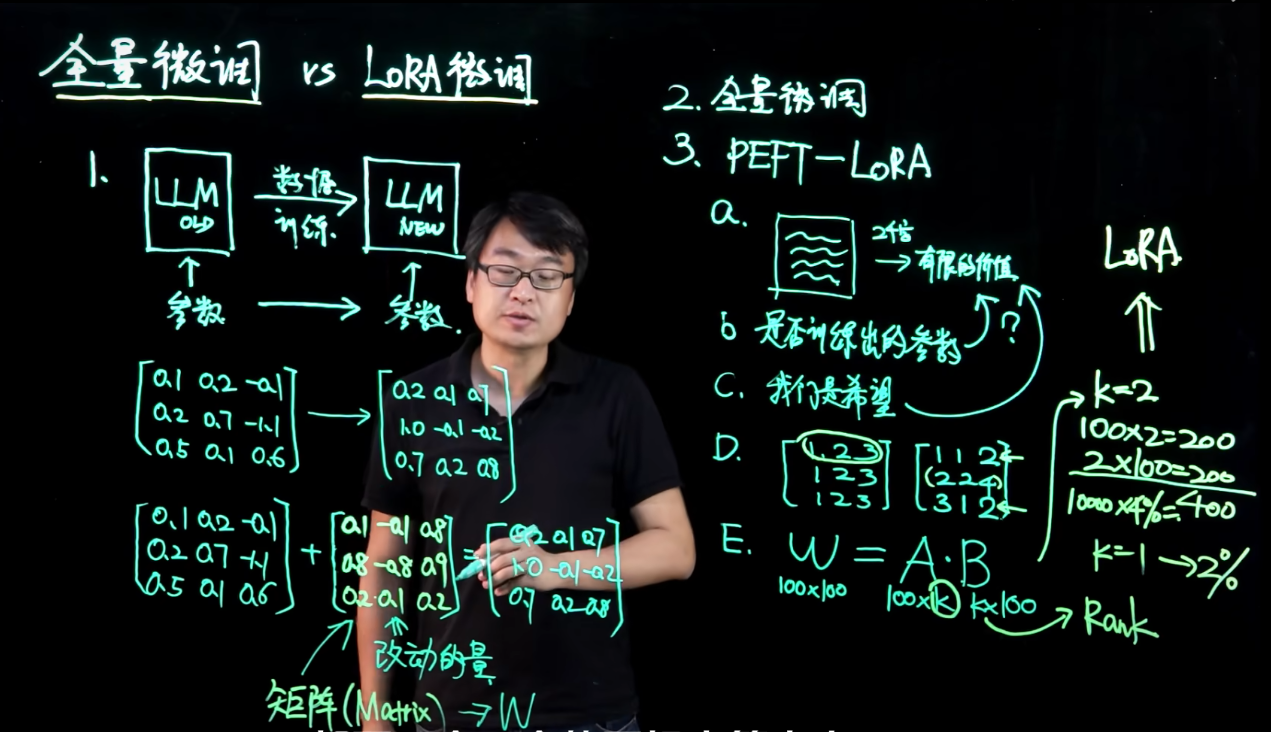 全量微调 vs LoRA微调
1.
LLM
OLD
数据
训练.
LLM
NEW
参数
参数.
0.1 0.2 -0.1
0.2 0.7 -1.1
0.5 0.1 0.6
0.2 0.1 0.7
1.0 -0.1 -0.2
0.7 0.2 0.8
0.1 0.2 -0.1
0.2 0.7 -1.1
0.5 0.1 0.6
+
0.1 -0.1 0.8
0.8 -0.8 0.9
0.2 0.1 0.2
=
0.2 0.1 0.7
1.0 -0.1 -0.2
0.7 0.2 0.8
改动的量
矩阵(Matrix) → W
2. 全量微调
3. PEFT-LoRA
a.
2千倍
→ 有限的价值
b 是否训练出的参数
?
C. 我们是希望
D.
1 2 3
1 2 3
1 2 3
1 1 2
(2 2 4)
3 1 2
E. W = A·B
100x100 100xk kx100
→ Rank
LoRA
k=2
100x2=200
2x100=200
10000x4%=400
k=1 → 2%